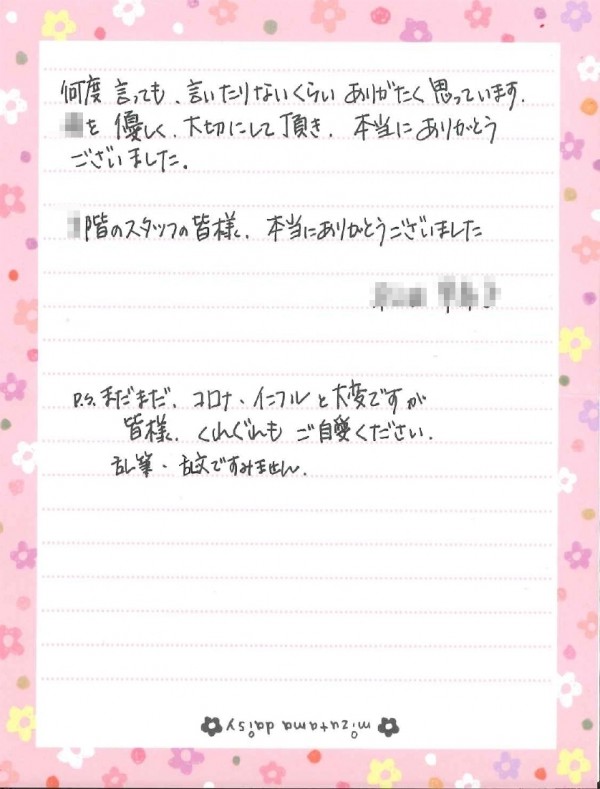 何度言っても、言いたりないくらいありがたく思っています。
を優しく、大切にして頂き、本当にありがとう
ございました。
階のスタッフの皆様、本当にありがとうございました
P.S. まだまだ、コロナ・インフルと大変ですが
皆様、くれぐれもご自愛ください。
乱筆・乱文ですみません。
mizutama daisy